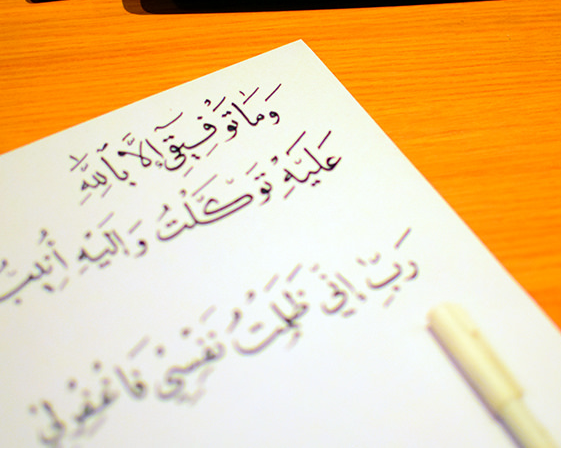 وَمَا تَوْفِيقِي إِلَّا بِاللَّهِ
عَلَيْهِ تَوَكَّلْتُ وَإِلَيْهِ أُنِيبُ
رَبِّ إِنِّي ظَلَمْتُ نَفْسِي فَاغْفِرْ لِي